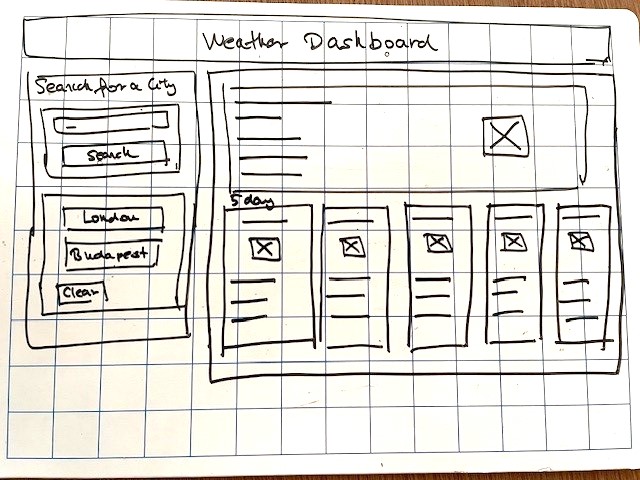 Weather Dashboard
Search for a City
Search
London
Budapest
Clear
5 day